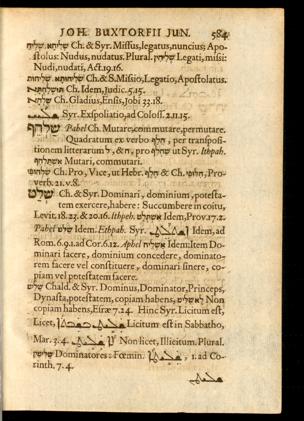 JOH. BUXTORFII JUN. 584
שליחא, שליח Ch. & Syr. Missus, legatus, nuncius; Apo-
stolus: Nudus, nudatus. Plural. שליחין Legati, missi:
Nudi, nudati, Act. 19.16.
שליחותא, שליחות Ch. & S. Missio, Legatio, Apostolatus.
Ch. Idem, Judic. 5.15.
שלחא Ch. Gladius, Ensis, Job 33.18.
Syr. Exspoliatio, ad Coloss. 2.11.15.
שלחף Pahel Ch. Mutare, commutare, permutare.
Quadratum ex verbo חלף, per transposi-
tionem litterarum ל, & ח, pro ut Syr. Ithpah.
אשתלחף Mutari, commutari.
Ch. Pro, Vice, ut Hebr. חלף & Ch. חלופי, Pro-
verb. 21. v. 8.
שלט Ch. & Syr. Dominari, dominium, potesta-
tem exercere, habere: Succumbere in coitu,
Levit. 18.23. & 20.16. Ithpeh. אשתלט Idem, Prov. 17.2.
Pahel שלט Idem. Ethpah. Syr. Idem, ad
Rom. 6.9. 1. ad Cor. 6.12. Aphel אשליט Idem: Item Do-
minari facere, dominium concedere, dominato-
rem facere vel constituere, dominari sinere, co-
piam vel potestatem facere.
שליט Chald. & Syr. Dominus, Dominator, Princeps,
Dynasta, potestatem, copiam habens, לא שליט Non
copiam habens, Esræ 7.24. Hinc Syr. Licitum est,
Licet, Licitum est in Sabbatho,
Mar. 3.4. Non licet, Illicitum. Plural.
שליטין Dominatores: Fœmin. 1. ad Co-
rinth. 7.4.